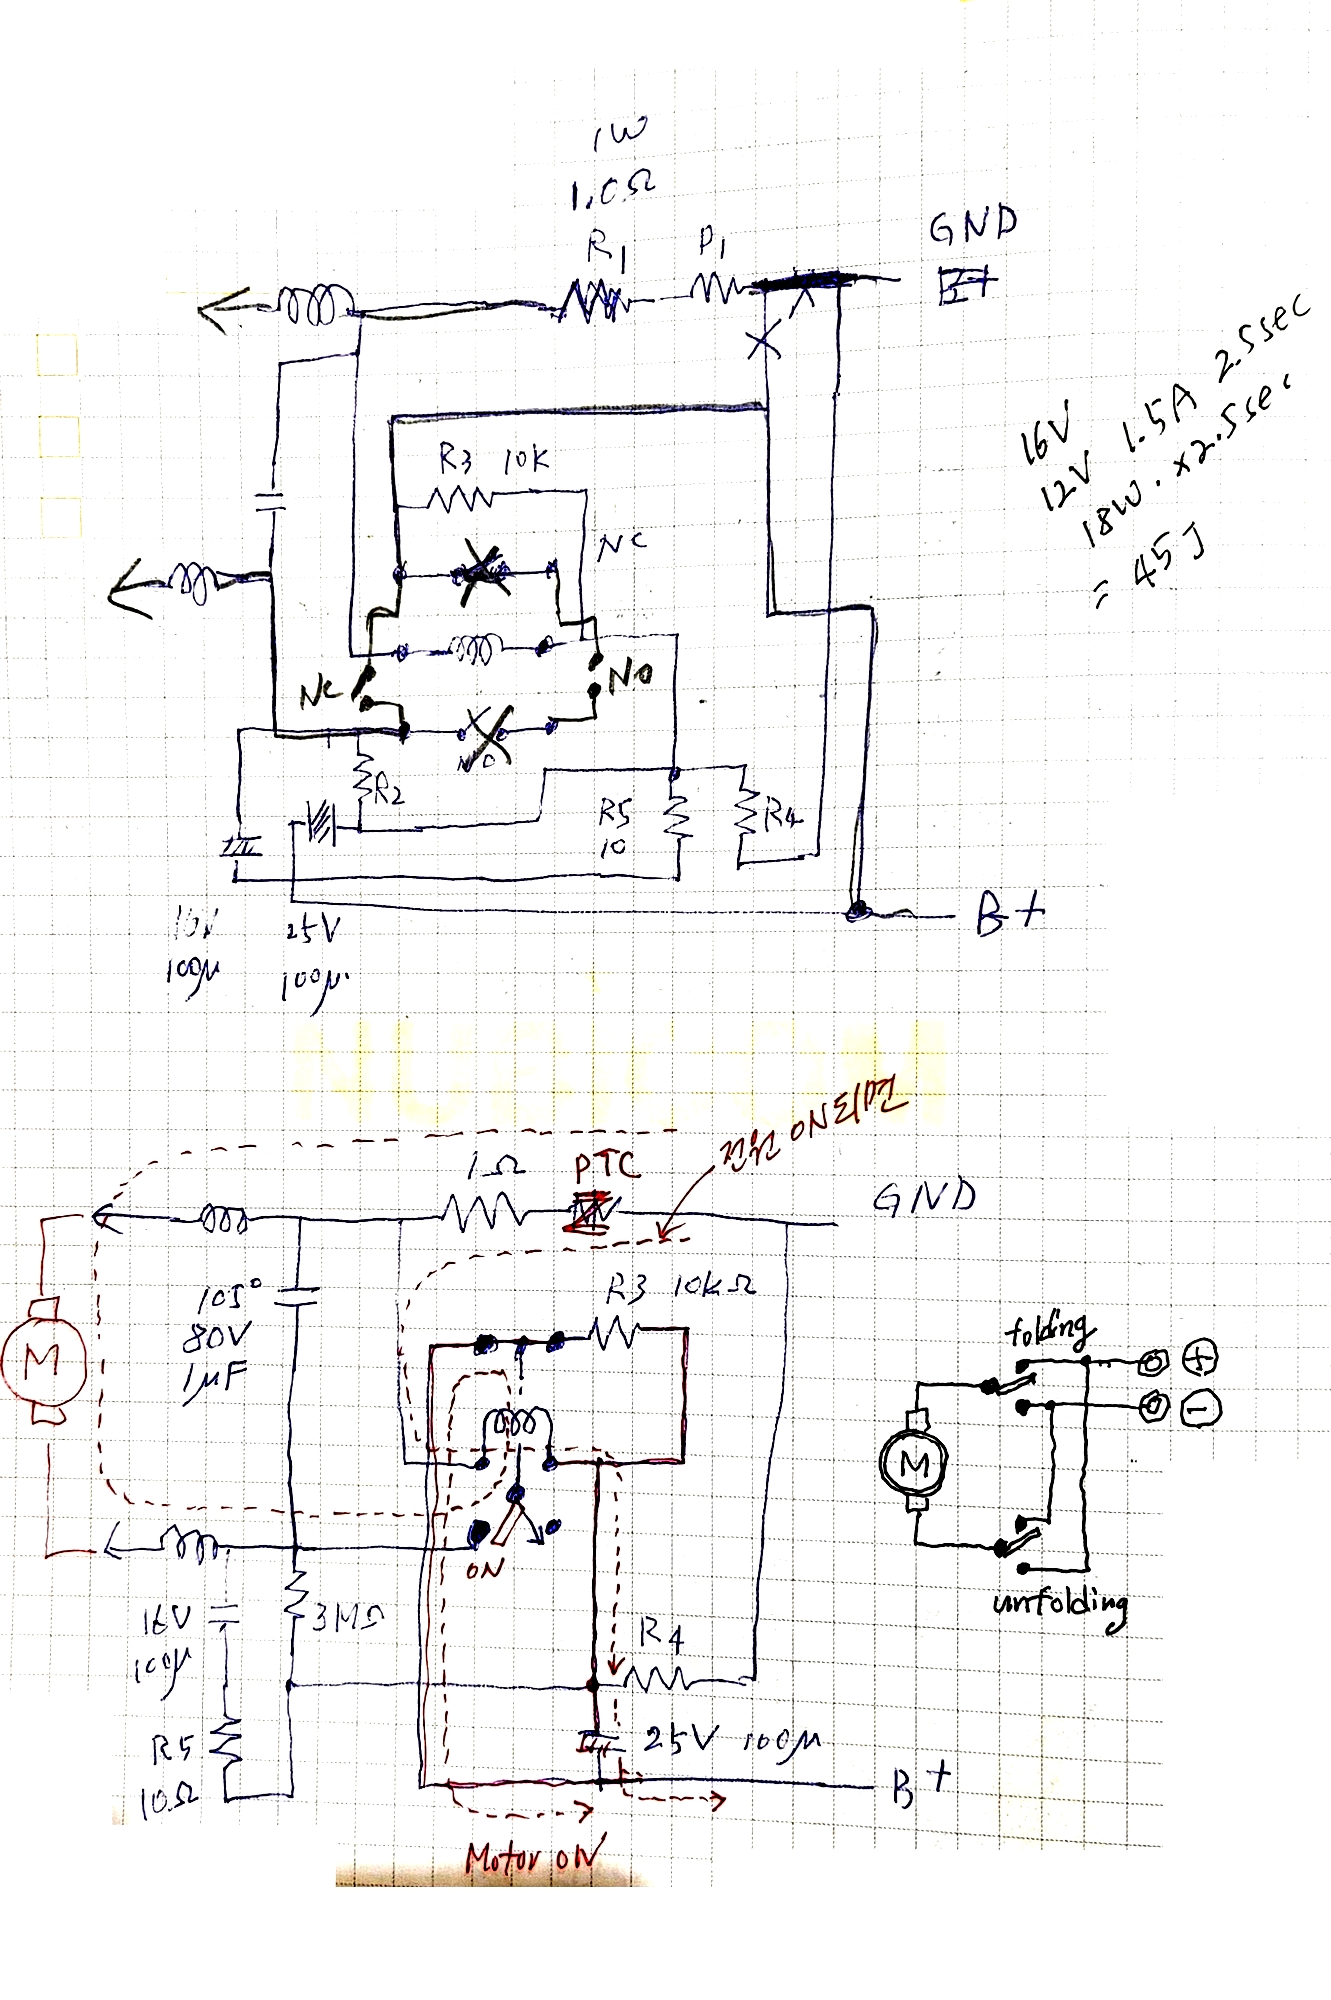 1W
1.0Ω
R1
P1
GND
16V
12V 1.5A 2.5sec
18W . x2.5sec
= 45J
R3 10K
NC
NC
NO
NO
R2
R5
10
R4
100μ
25V
100μ.
B+
NUBICOM
전원 ON되면
1Ω
PTC
GND
105°
80V
1μF
R3 10kΩ
M
folding
+
-
M
unfolding
ON
16V
100μ
3MΩ
R4
R5
10Ω
25V 100μ
B+
Motor ON